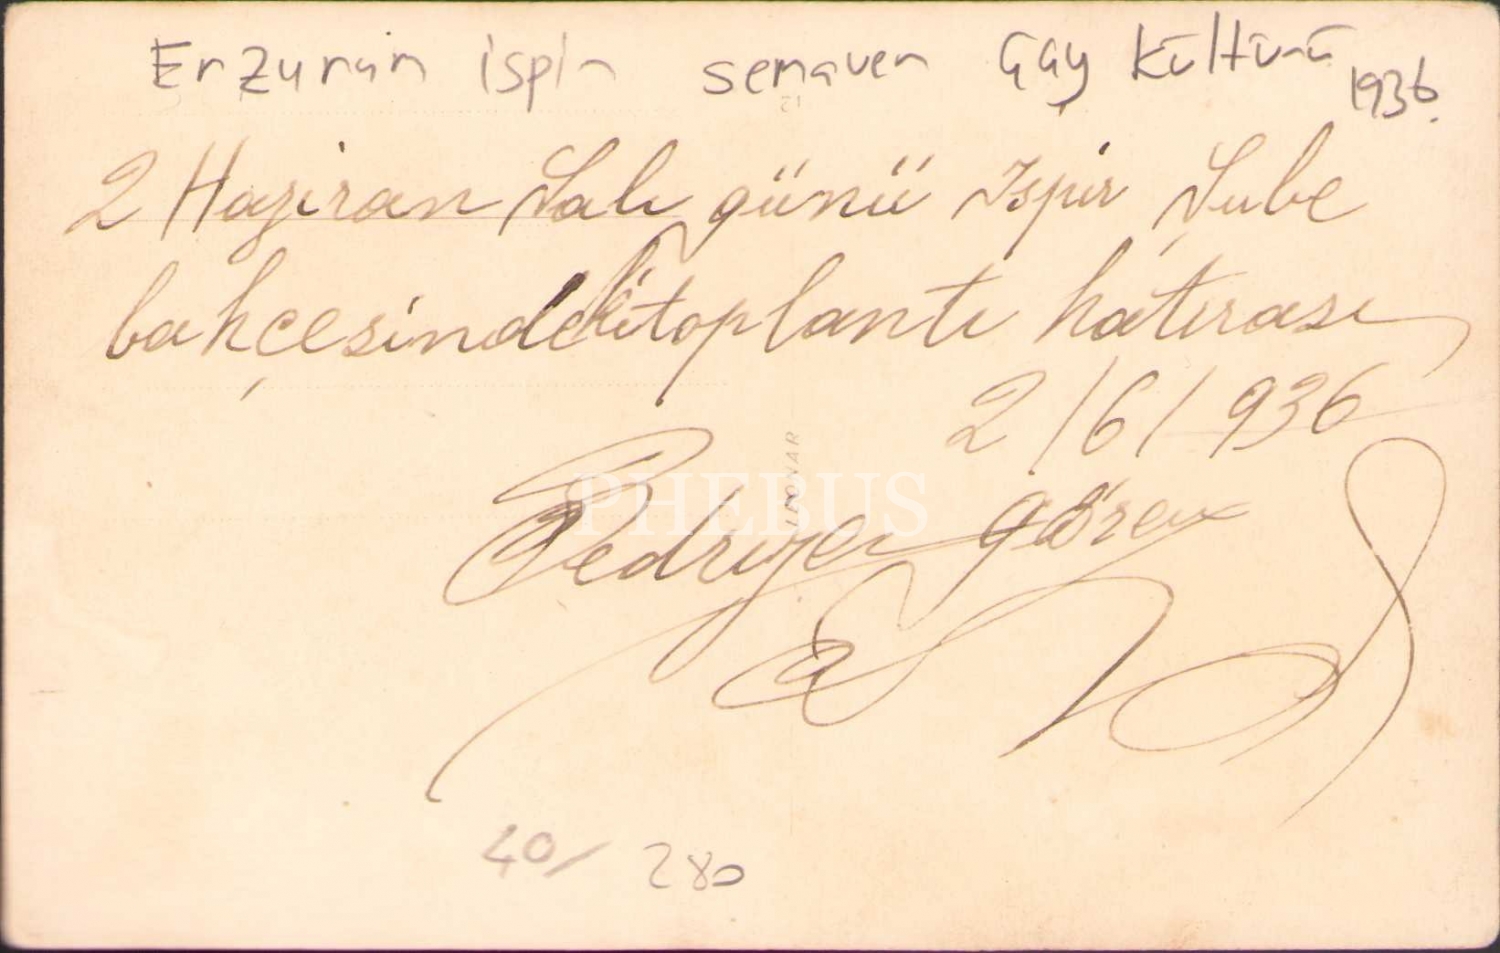 Erzurum ispir semaver Çay Kültürü 1936.
2 Haziran Salı günü Ispir Şube
bahçesindeki toplantı hatırası
2/6/936
Bedriye Gören
PHEBUS
40/ 280